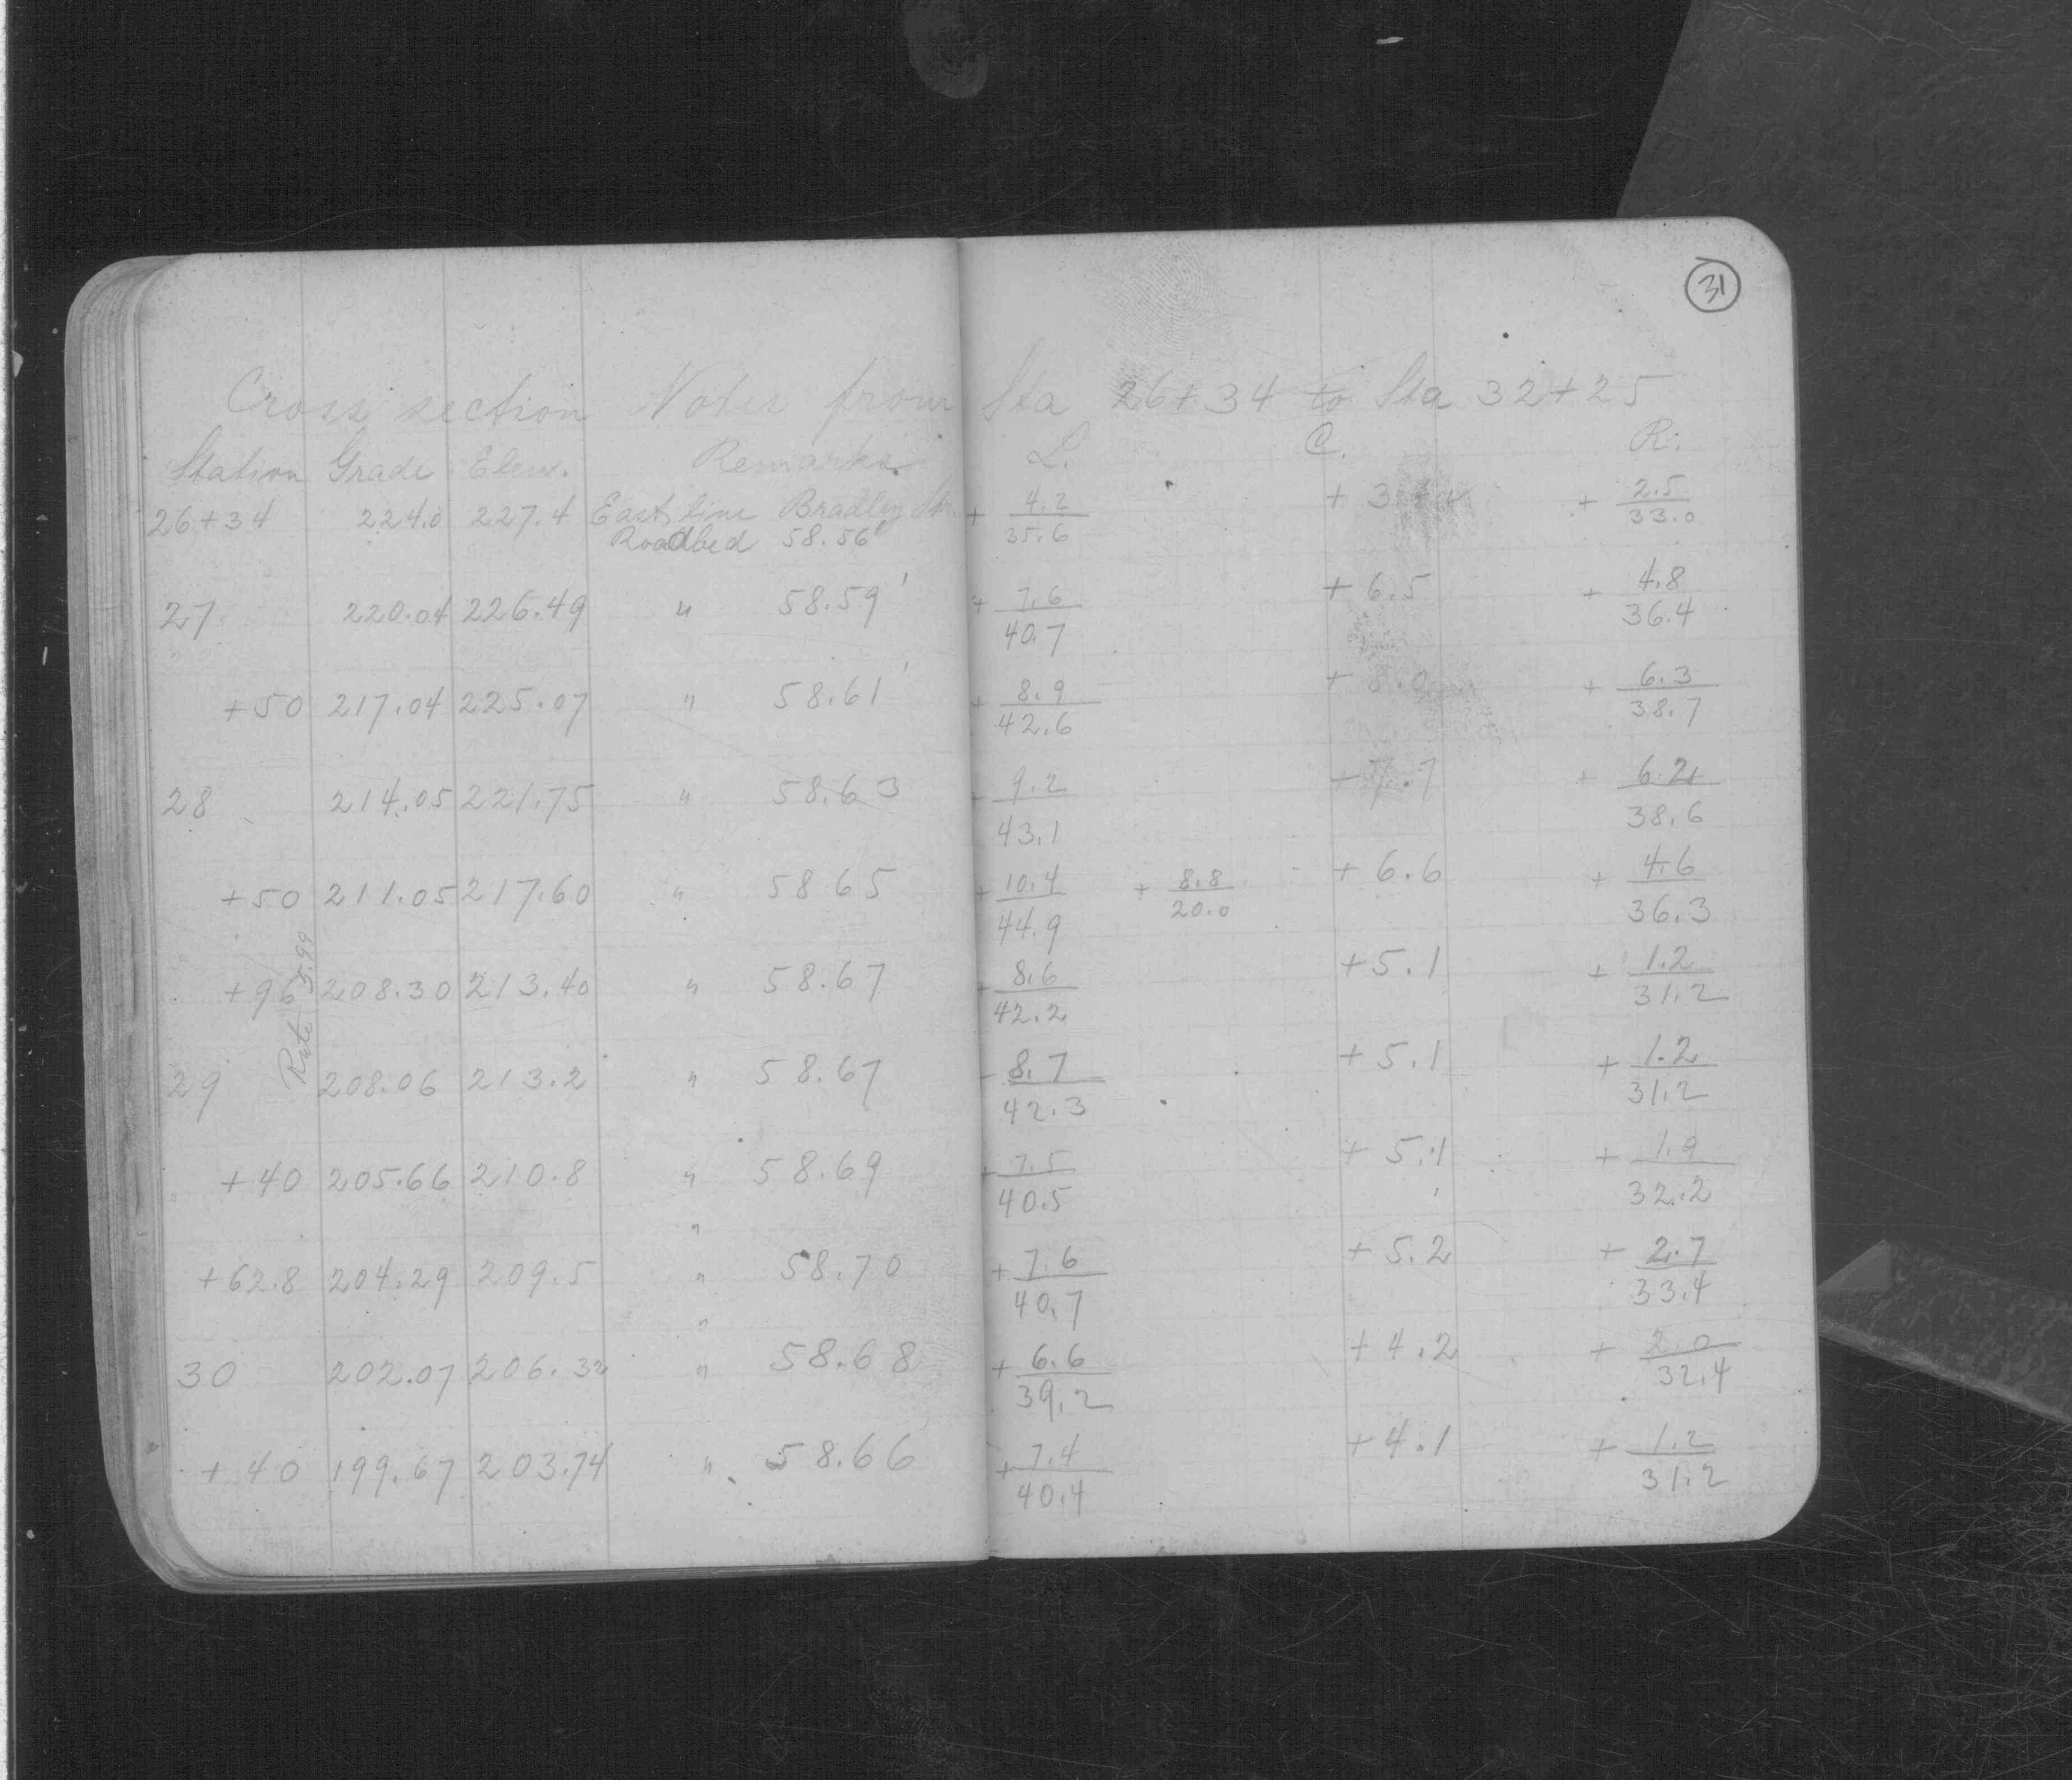 31
Cross section Notes from Sta 26+34 to Sta 32+25
Station Grade Elev. Remarks. L. C. R.
26+34 224.0 227.4 East line Bradley Str. + 4.2/35.6 + 3.4 + 2.5/33.0
Roadbed 58.56'
27 220.04 226.49 " 58.59' + 7.6/40.7 + 6.5 + 4.8/36.4
+50 217.04 225.07 " 58.61' + 8.9/42.6 + 8.0 + 6.3/38.7
28 214.05 221.75 " 58.63 + 9.2/43.1 + 7.7 + 6.2/38.6
+50 211.05 217.60 " 58 65 + 10.4/44.9 + 8.8/20.0 + 6.6 + 4.6/36.3
+96 208.30 213.40 " 58.67 + 8.6/42.2 + 5.1 + 1.2/31.2
Rate 5.99
29 208.06 213.2 " 58.67 + 8.7/42.3 + 5.1 + 1.2/31.2
+40 205.66 210.8 " 58.69 + 7.5/40.5 + 5.1 + 1.9/32.2
"
+62.8 204.29 209.5 " 58.70 + 7.6/40.7 + 5.2 + 2.7/33.4
"
30 202.07 206.32 " 58.68 + 6.6/39.2 + 4.2 + 2.0/32.4
+40 199.67 203.74 " 58.66 + 7.4/40.4 + 4.1 + 1.2/31.2